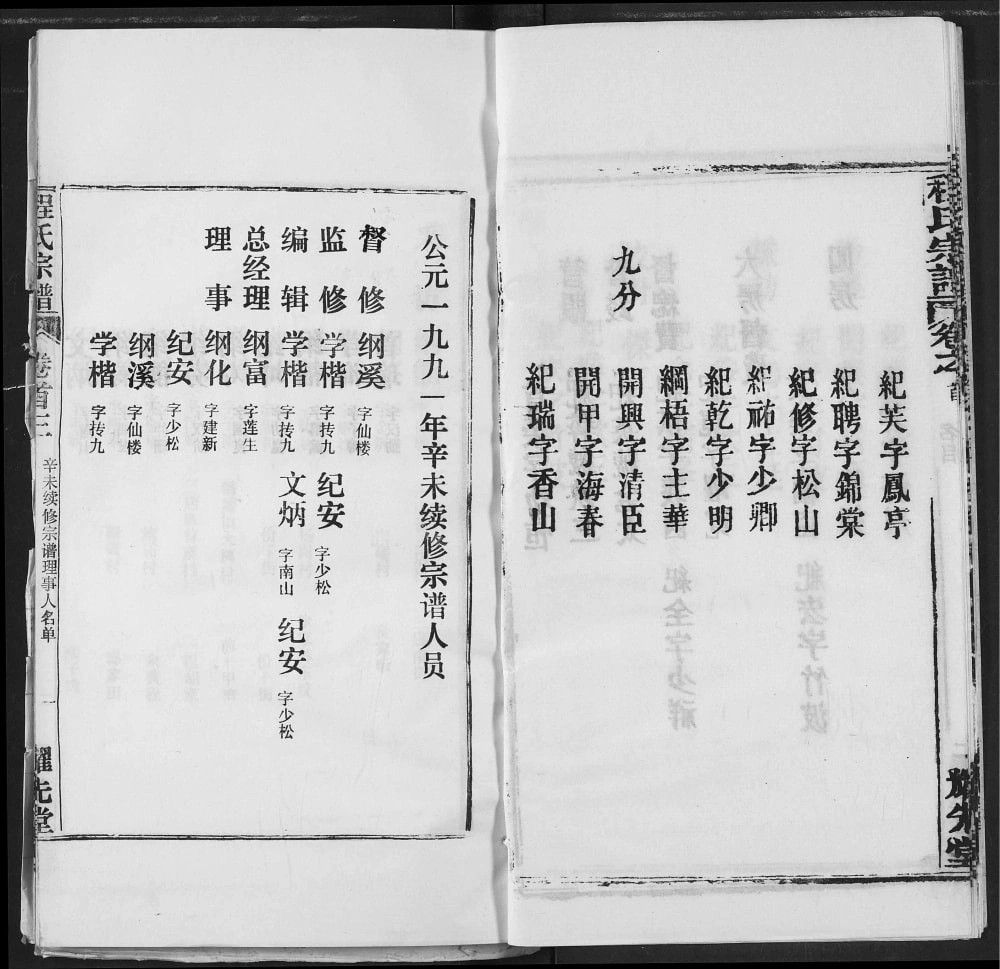 程氏宗譜
卷之
首
紀芙字鳳亭
紀聘字錦棠
紀修字松山
紀祐字少卿
紀乾字少明
綱梧字主華
九分
開興字清臣
開甲字海春
紀瑞字香山
公元一九九一年辛未续修宗谱人员
督修 纲溪 字仙楼
监修 学楷 字抟九 纪安 字少松
编辑 学楷 字抟九 文炳 字南山 纪安 字少松
总经理 纲富 字莲生
理事 纲化 字建新
纪安 字少松
纲溪 字仙楼
学楷 字抟九
程氏宗谱
卷首三
辛未续修宗谱理事人名单
一
耀先堂